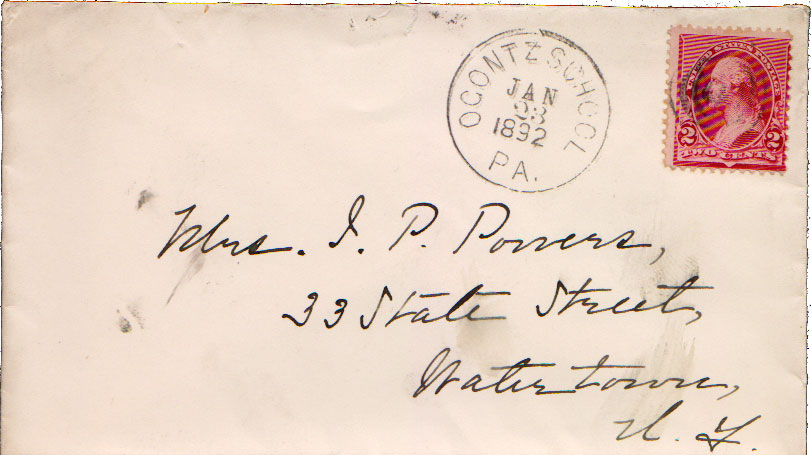 OGONTZ SCHOOL
JAN
23
1892
PA.
UNITED STATES POSTAGE
2 2
TWO CENTS
Mrs. I. P. Powers,
33 State Street,
Watertown,
N. Y.